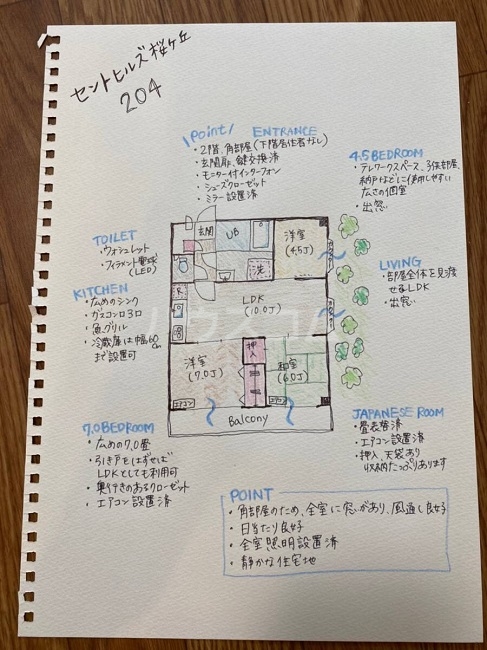 セントヒルズ桜ヶ丘
204
\Point/ ENTRANCE
・2階、角部屋(下階居住者なし)
・玄関扉、鍵交換済
・モニター付インターフォン
・シューズクローゼット
・ミラー設置済
4.5 BEDROOM
・テレワークスペース、子供部屋、
納戸などに使用しやすい
広さの個室
・出窓
TOILET
・ウォシュレット
・フィラメント電球
(LED)
KITCHEN
・広めのシンク
・ガスコンロ3口
・魚グリル
・冷蔵庫は幅60cm
まで設置可
LIVING
・部屋全体を見渡
せるLDK
・出窓
玄関
UB
洋室
(4.5J)
洗
R
LDK
(10.0J)
ハウスコム
洋室
(7.0J)
押入
和室
(6.0J)
エアコン
エアコン
Balcony
7.0 BEDROOM
・広めの7.0畳
・引き戸をはずせば
LDKとしても利用可
・奥行きのあるクローゼット
・エアコン設置済
JAPANESE ROOM
・畳表替済
・エアコン設置済
・押入、天袋あり
収納たっぷりあります
POINT
・角部屋のため、全室に窓があり、風通し良好
・日当たり良好
・全室照明設置済
・静かな住宅地